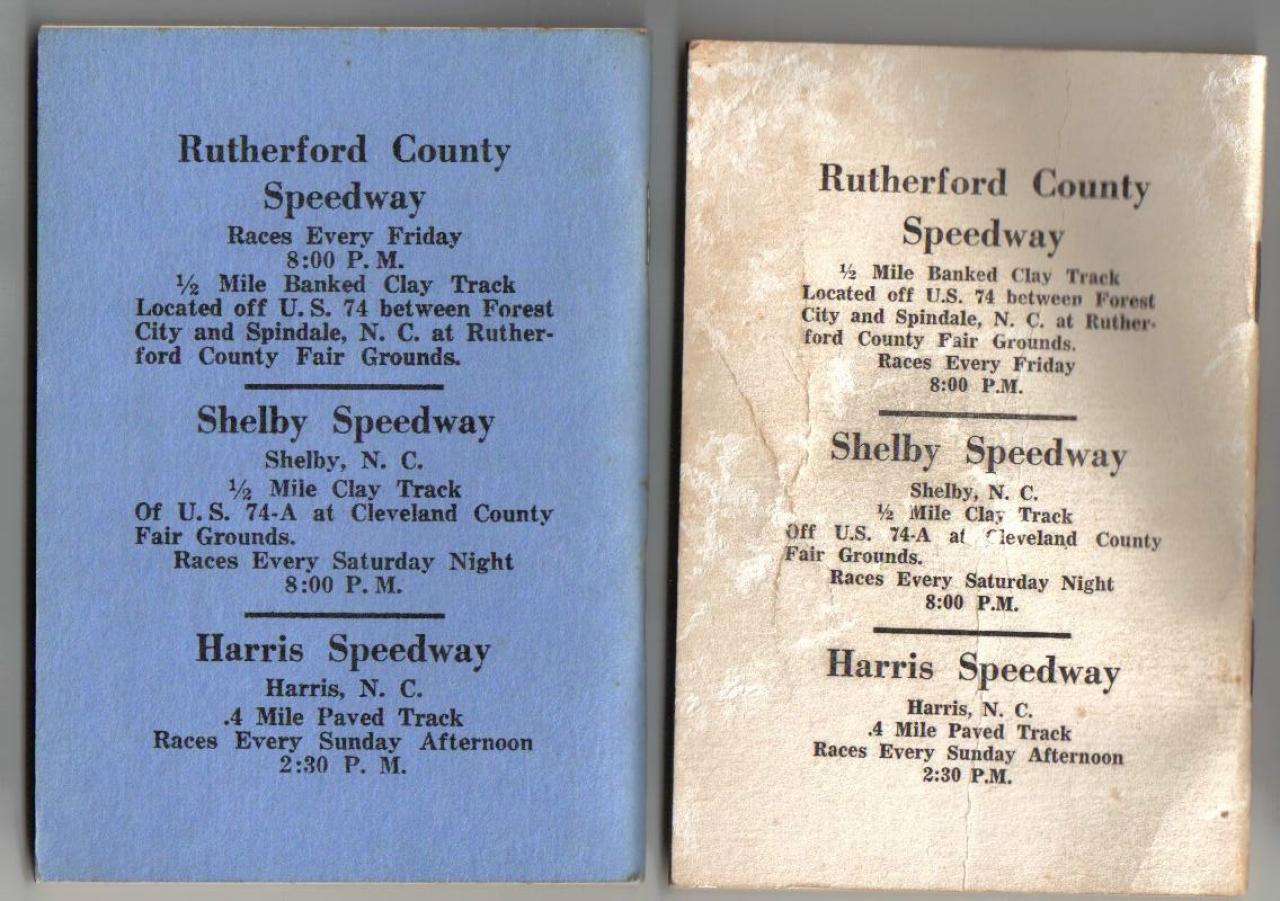 Rutherford County
Speedway
Races Every Friday
8:00 P. M.
½ Mile Banked Clay Track
Located off U. S. 74 between Forest
City and Spindale, N. C. at Ruther-
ford County Fair Grounds.
Shelby Speedway
Shelby, N. C.
½ Mile Clay Track
Of U. S. 74-A at Cleveland County
Fair Grounds.
Races Every Saturday Night
8:00 P. M.
Harris Speedway
Harris, N. C.
.4 Mile Paved Track
Races Every Sunday Afternoon
2:30 P. M.
Rutherford County
Speedway
½ Mile Banked Clay Track
Located off U.S. 74 between Forest
City and Spindale, N. C. at Ruther-
ford County Fair Grounds.
Races Every Friday
8:00 P.M.
Shelby Speedway
Shelby, N. C.
½ Mile Clay Track
Off U.S. 74-A at Cleveland County
Fair Grounds.
Races Every Saturday Night
8:00 P.M.
Harris Speedway
Harris, N. C.
.4 Mile Paved Track
Races Every Sunday Afternoon
2:30 P.M.